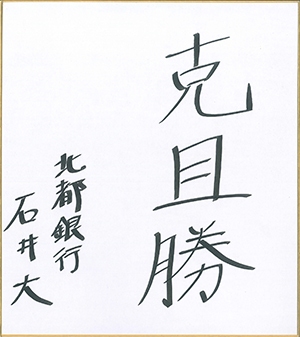 克且勝
北都銀行
石井大